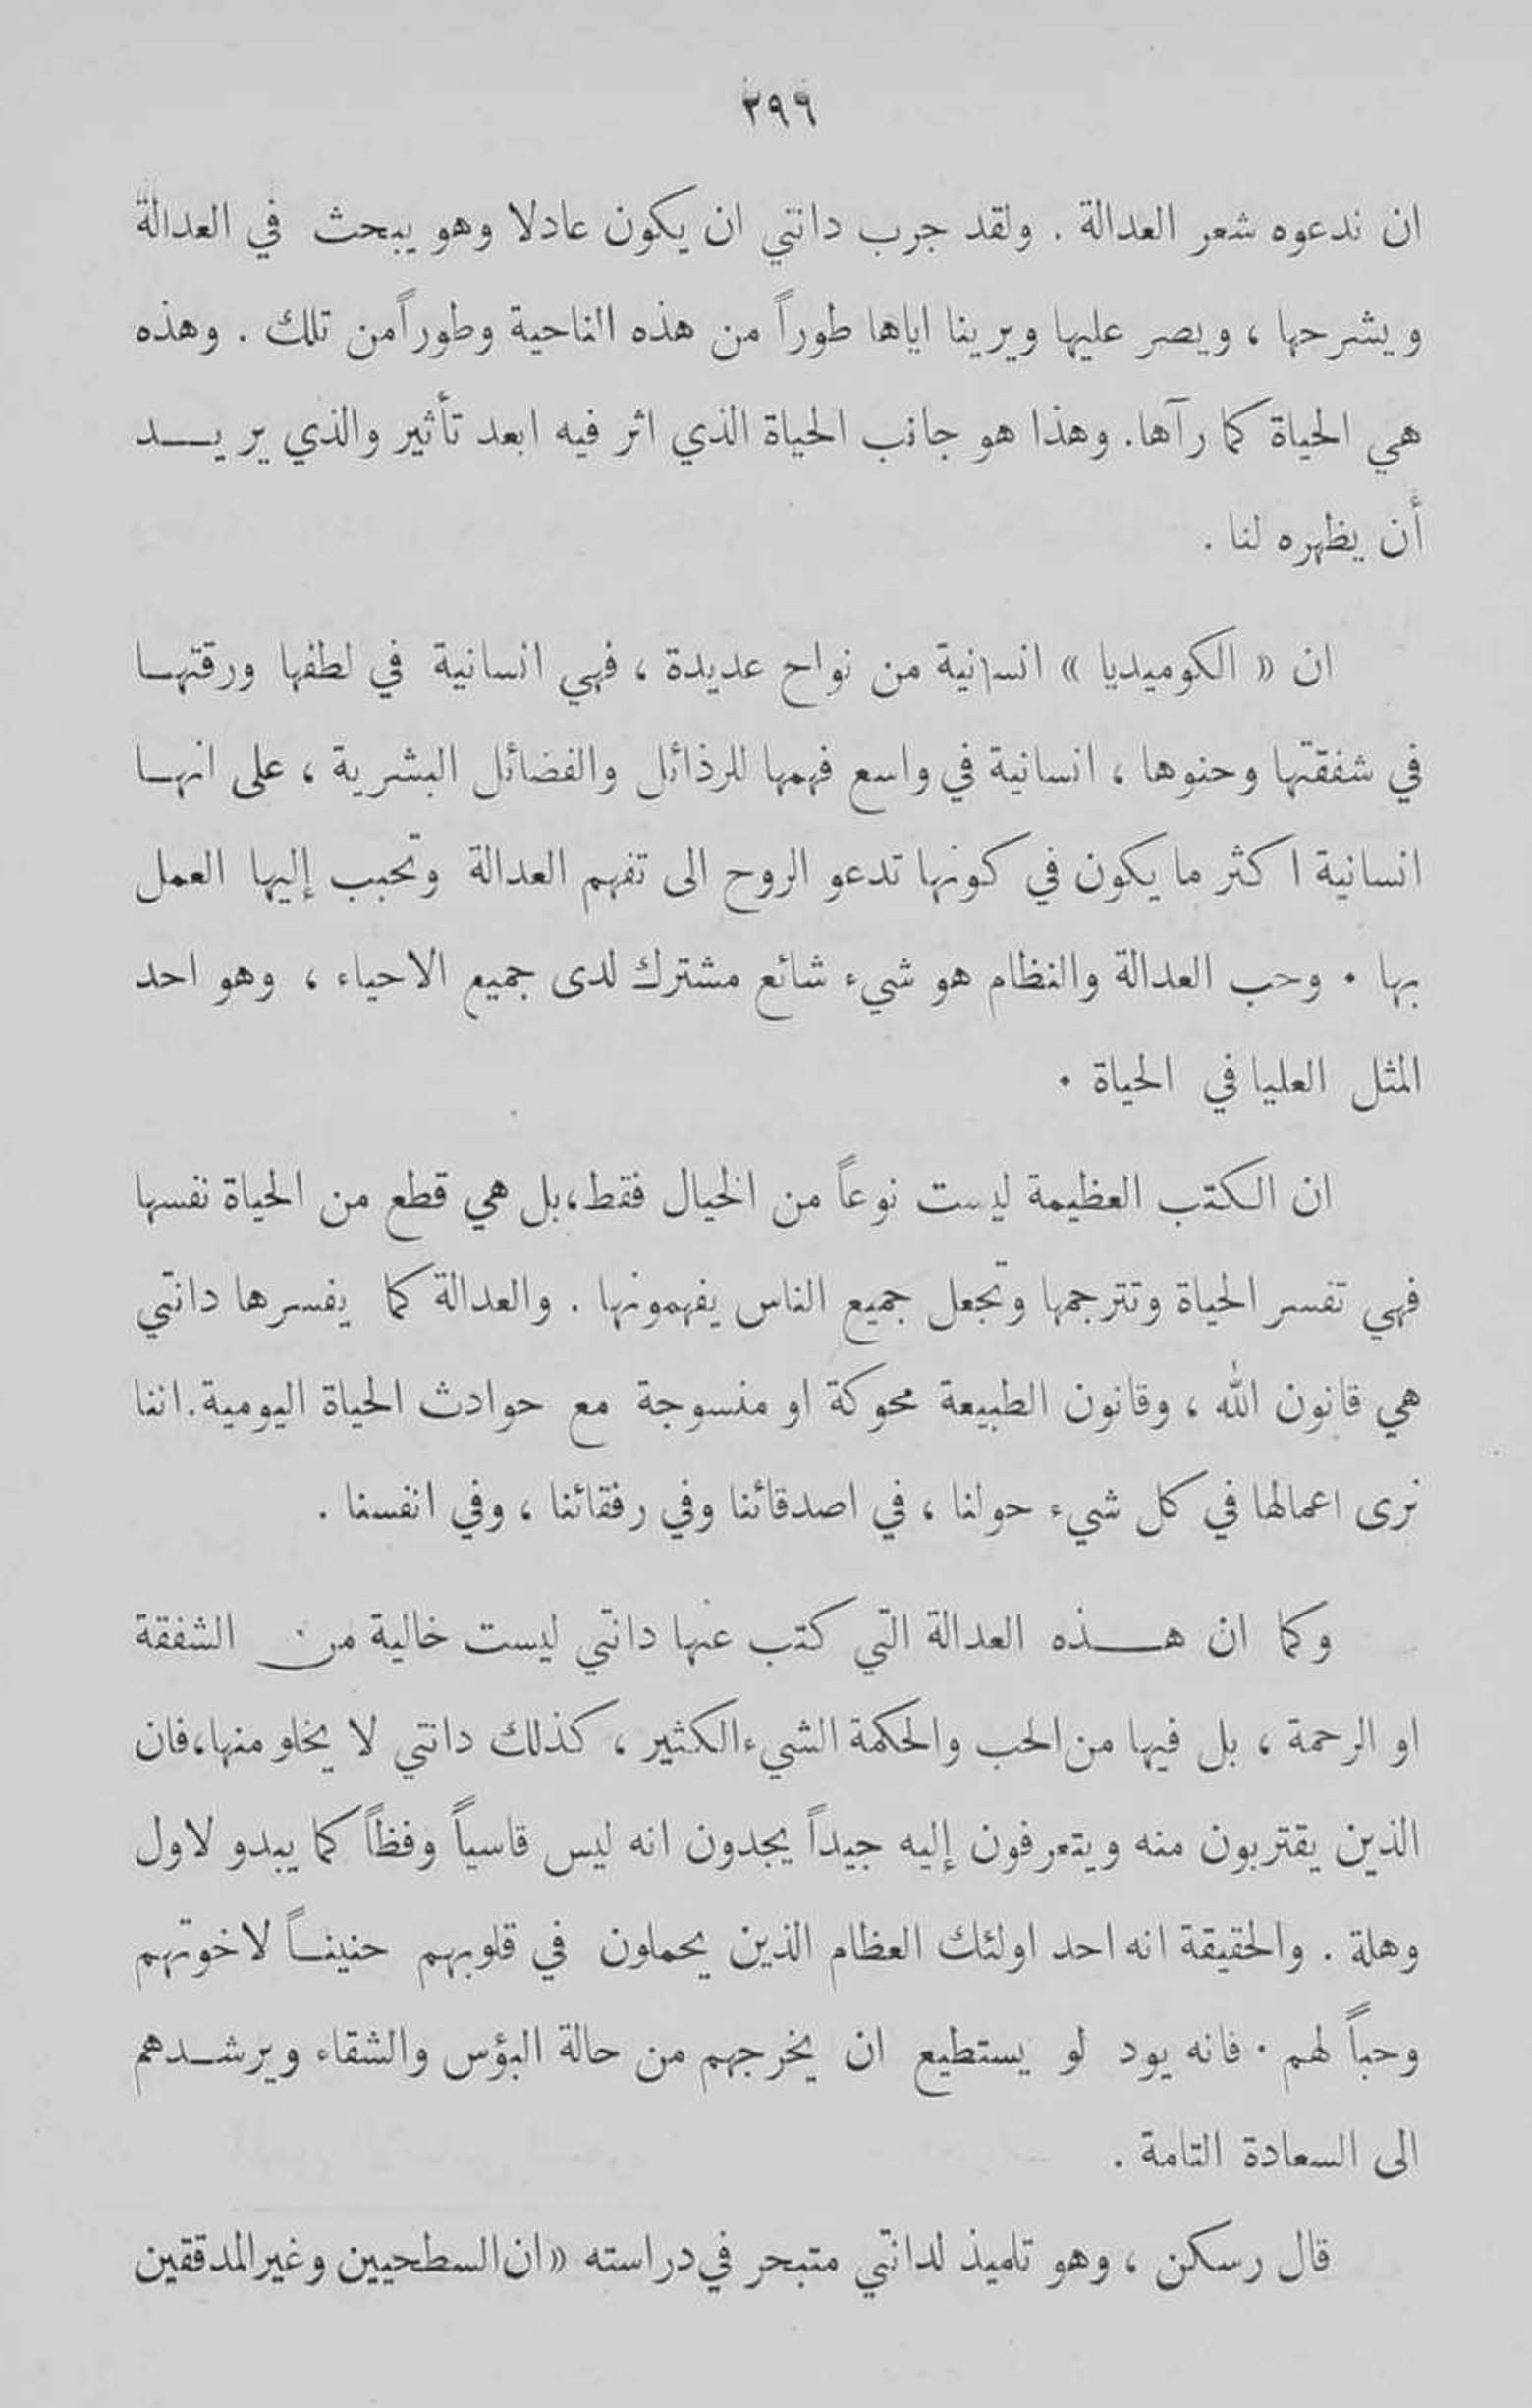 ٢٩٦
ان ندعوه شعر العدالة . ولقد جرب دانتي ان يكون عادلا وهو يبحث في العدالة
ويشرحها ، ويصر عليها ويرينا اياها طوراً من هذه الناحية وطوراً من تلك . وهذه
هي الحياة كما رآها. وهذا هو جانب الحياة الذي اثر فيه ابعد تأثير والذي يريد
أن يظهره لنا .
ان « الكوميديا » انسانية من نواح عديدة ، فهي انسانية في لطفها ورقتها
في شفقتها وحنوها ، انسانية في واسع فهمها للرذائل والفضائل البشرية ، على انها
انسانية اكثر ما يكون في كونها تدعو الروح الى تفهم العدالة وتحبب إليها العمل
بها . وحب العدالة والنظام هو شيء شائع مشترك لدى جميع الاحياء ، وهو احد
المثل العليا في الحياة .
ان الكتب العظيمة ليست نوعاً من الخيال فقط، بل هي قطع من الحياة نفسها
فهي تفسر الحياة وتترجمها وتجعل جميع الناس يفهمونها . والعدالة كما يفسرها دانتي
هي قانون الله ، وقانون الطبيعة محوكة او منسوجة مع حوادث الحياة اليومية. اننا
نرى اعمالها في كل شيء حولنا ، في اصدقائنا وفي رفقائنا ، وفي انفسنا .
وكما ان هذه العدالة التي كتب عنها دانتي ليست خالية من الشفقة
او الرحمة ، بل فيها من الحب والحكمة الشيء الكثير ، كذلك دانتي لا يخلو منها، فان
الذين يقتربون منه ويتعرفون إليه جيداً يجدون انه ليس قاسياً وفظاً كما يبدو لاول
وهلة . والحقيقة انه احد اولئك العظام الذين يحملون في قلوبهم حنيناً لاخوتهم
وحباً لهم . فانه يود لو يستطيع ان يخرجهم من حالة البؤس والشقاء ويرشدهم
الى السعادة التامة .
قال رسكن ، وهو تلميذ لدانتي متبحر في دراسته « ان السطحيين وغير المدققين